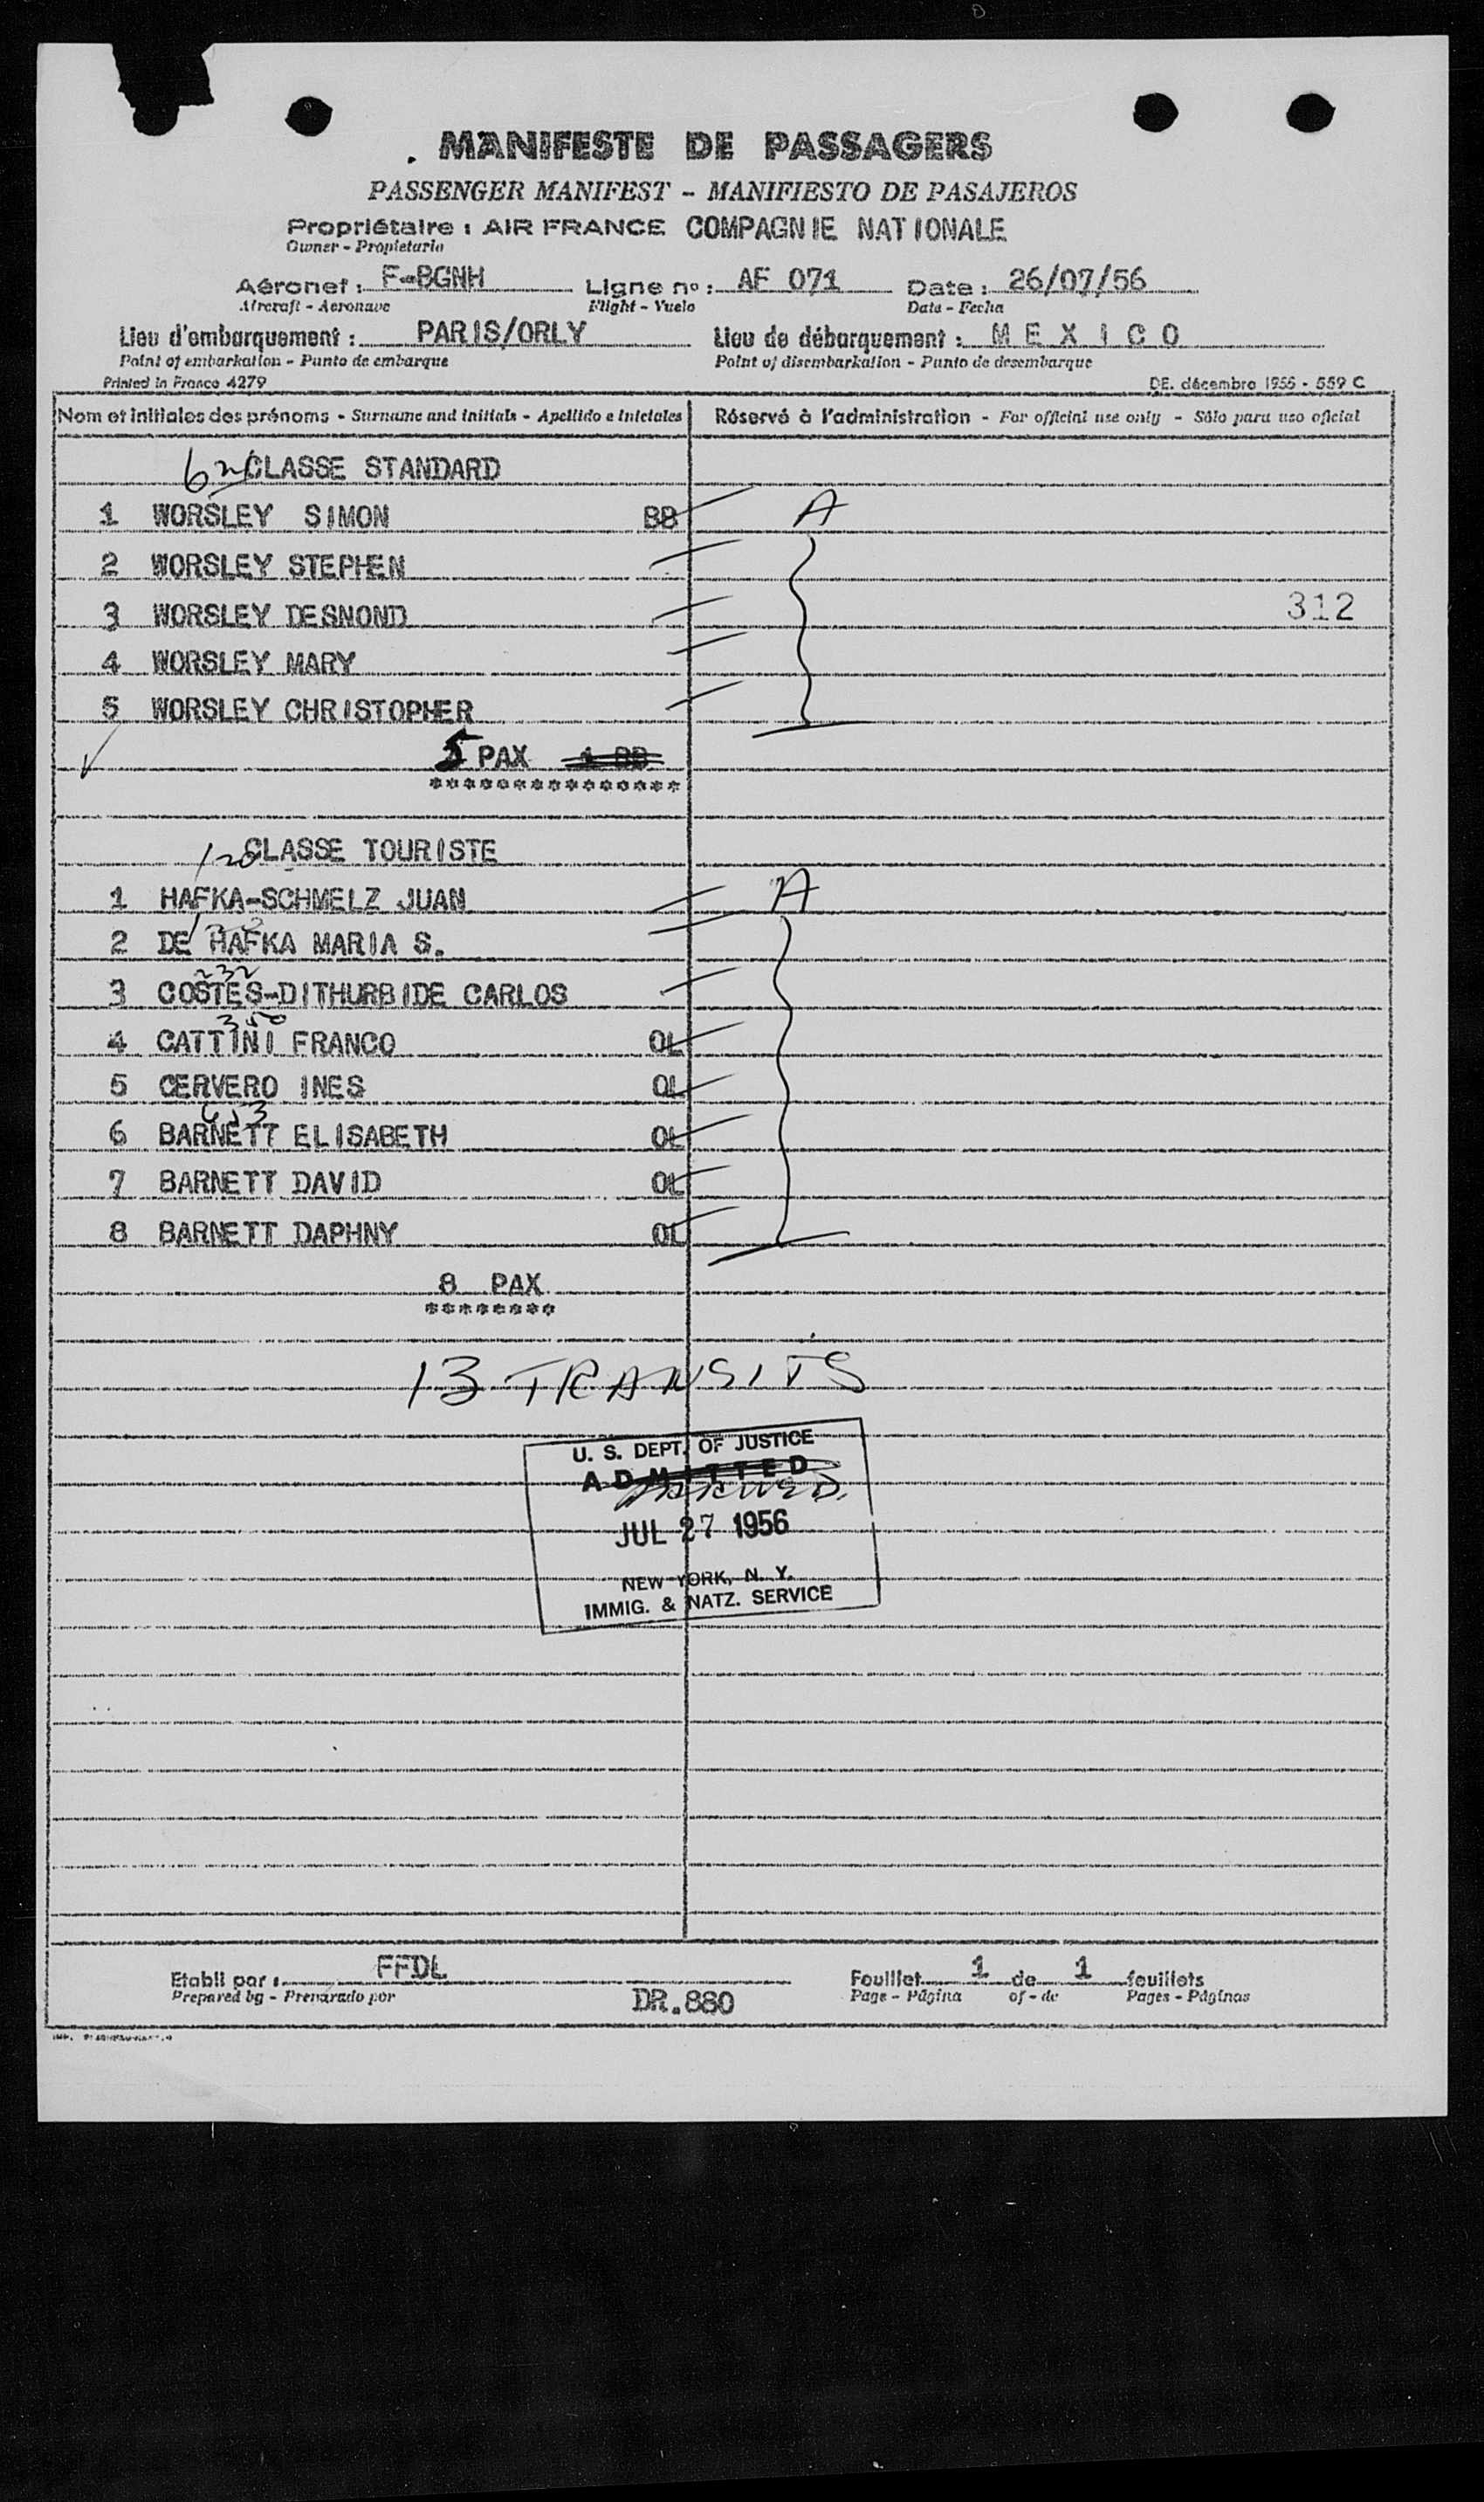 MANIFESTE DE PASSAGERS
PASSENGER MANIFEST - MANIFIESTO DE PASAJEROS
Propriétaire : AIR FRANCE COMPAGNIE NATIONALE
Owner - Propietario
Aéronef : F-BGNH Ligne no : AF 071 Date : 26/07/56
Aircraft - Aeronave Flight - Vuelo Date - Fecha
Lieu d'embarquement : PARIS/ORLY Lieu de débarquement : M E X I C O
Point of embarkation - Punto de embarque Point of disembarkation - Punto de desembarque
Printed in France 4279 DE. décembre 1955 - 559 C
Nom et initiales des prénoms - Surname and initials - Apellido e iniciales Réservé à l'administration - For official use only - Sólo para uso oficial
CLASSE STANDARD
1 WORSLEY SIMON BB A
2 WORSLEY STEPHEN
3 WORSLEY DESNOND 312
4 WORSLEY MARY
5 WORSLEY CHRISTOPHER
5 PAX 1 BB
***************
CLASSE TOURISTE
1 HAFKA-SCHMELZ JUAN A
2 DE HAFKA MARIA S.
232
3 COSTES-DITHURBIDE CARLOS
350
4 CATTINI FRANCO OL
5 CERVERO INES OL
653
6 BARNETT ELISABETH OL
7 BARNETT DAVID OL
8 BARNETT DAPHNY OL
8 PAX
********
13 TRANSITS
U. S. DEPT. OF JUSTICE
ADMITTED
JUL 27 1956
NEW YORK, N. Y.
IMMIG. & NATZ. SERVICE
Etabli par : FFDL Feuillet 1 de 1 feuillets
Prepared by - Preparado por DR.880 Page - Página of - de Pages - Páginas